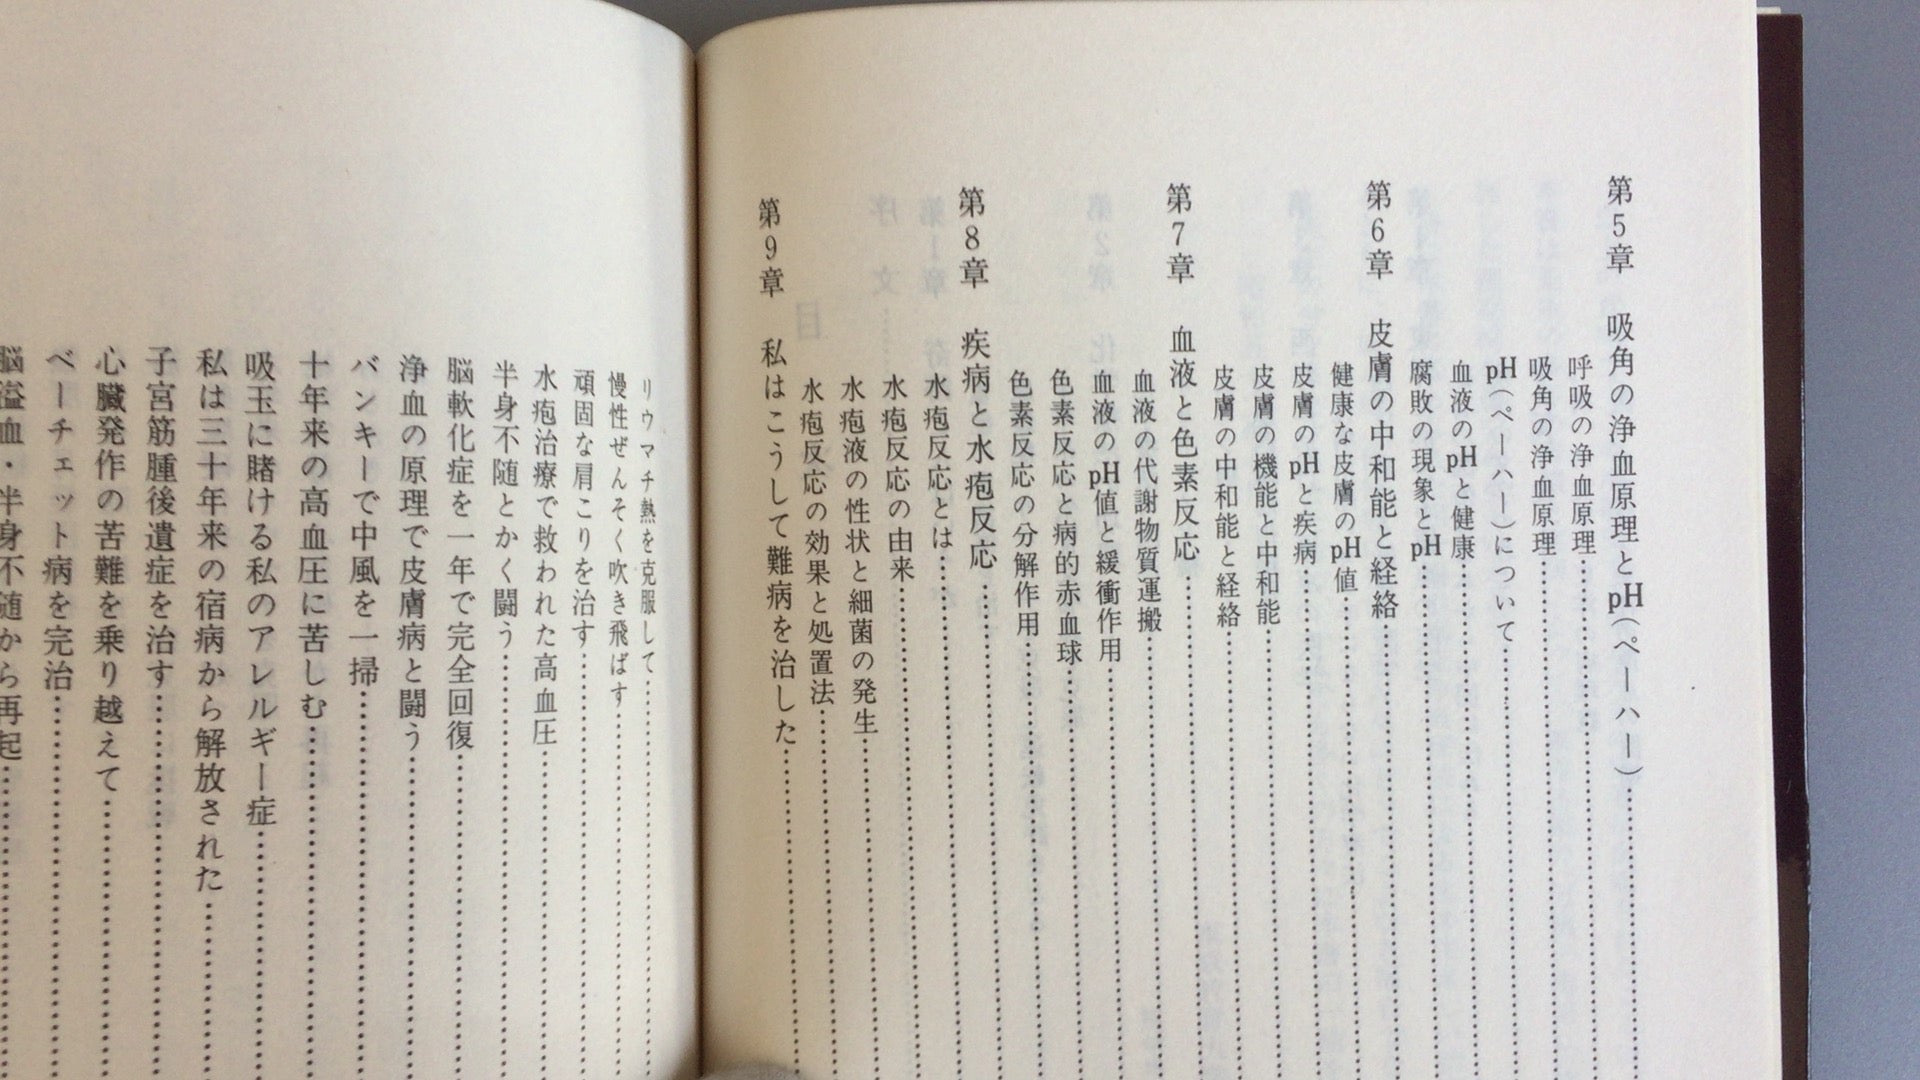 第5章 吸角の浄血原理とpH(ペーハー)
呼吸の浄血原理
吸角の浄血原理
pH(ペーハー)について
血液のpHと健康
腐敗の現象とpH
第6章 皮膚の中和能と経絡
健康な皮膚のpH値
皮膚のpHと疾病
皮膚の機能と中和能
皮膚の中和能と経絡
第7章 血液と色素反応
血液の代謝物質運搬
血液のpH値と緩衝作用
色素反応と病的赤血球
色素反応の分解作用
第8章 疾病と水疱反応
水疱反応とは
水疱反応の由来
水疱液の性状と細菌の発生
水疱反応の効果と処置法
第9章 私はこうして難病を治した
リウマチ熱を克服して
慢性ぜんそく吹き飛ばす
頑固な肩こりを治す
水疱治療で救われた高血圧
半身不随とかく闘う
脳軟化症を一年で完全回復
浄血の原理で皮膚病と闘う
バンキーで中風を一掃
十年来の高血圧に苦しむ
吸玉に賭ける私のアレルギー症
私は三十年来の宿病から解放された
子宮筋腫後遺症を治す
心臓発作の苦難を乗り越えて
ベーチェット病を完治
脳溢血・半身不随から再起